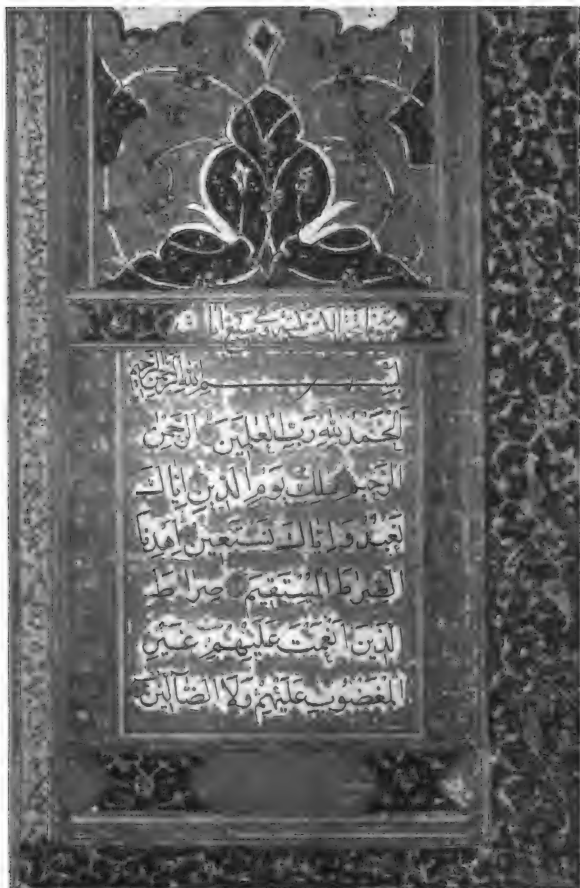 بِسْمِ اللهِ الرَّحْمٰنِ الرَّحِيمِ
اَلْحَمْدُ لِلّٰهِ رَبِّ الْعٰلَمِينَ الرَّحْمٰنِ
الرَّحِيمِ مٰلِكِ يَوْمِ الدِّينِ اِيَّاكَ
نَعْبُدُ وَاِيَّاكَ نَسْتَعِينُ اِهْدِنَا
الصِّرَاطَ الْمُسْتَقِيمَ صِرَاطَ
الَّذِينَ اَنْعَمْتَ عَلَيْهِمْ غَيْرِ
الْمَغْضُوبِ عَلَيْهِمْ وَلَا الضَّآلِّينَ